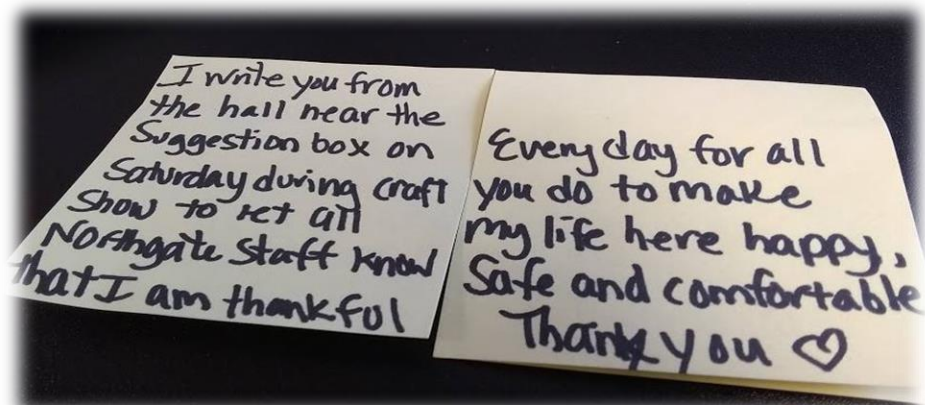 I write you from
the hall near the
Suggestion box on
Saturday during craft
Show to let all
Northgate Staff know
that I am thankful
Every day for all
you do to make
my life here happy,
Safe and comfortable
Thank you ♡